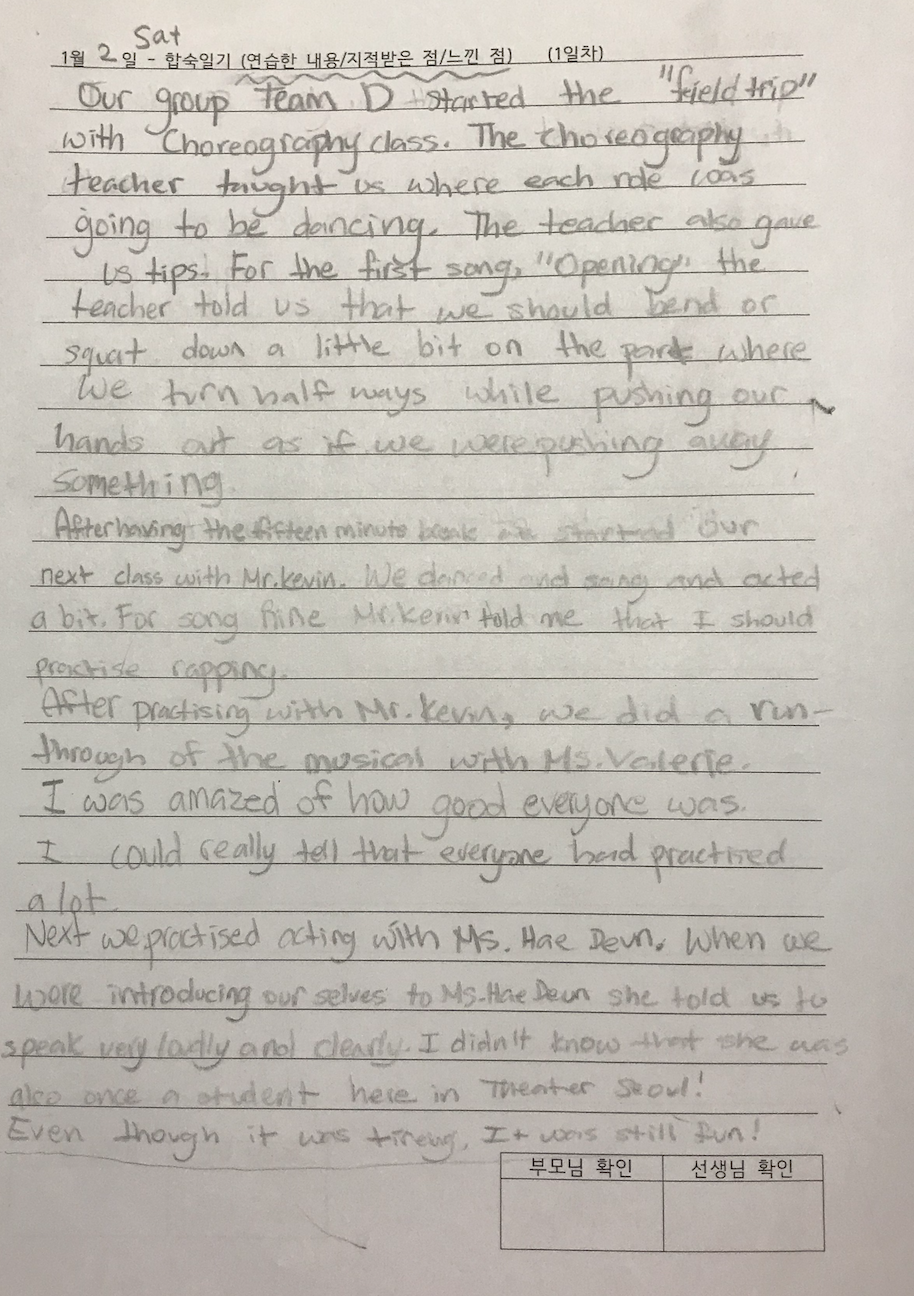 Sat
1월 2일 - 합숙일기 (연습한 내용/지적받은 점/느낀 점) (1일차)
Our group Team D started the "field trip"
with Choreography class. The choreography
teacher taught us where each role was
going to be dancing. The teacher also gave
us tips. For the first song, "Opening" the
teacher told us that we should bend or
squat down a little bit on the part where
we turn half ways while pushing our
hands out as if we were pushing away
something.
After having the fifteen minute break we started our
next class with Mr.Kevin. We danced and sang and acted
a bit. For song nine Mr.Kevin told me that I should
practise rapping.
After practising with Mr.Kevin, we did a run-
through of the musical with Ms.Valerie.
I was amazed of how good everyone was.
I could really tell that everyone had practised
a lot
Next we practised acting with Ms. Hae Deun. When we
were introducing our selves to Ms.Hae Deun she told us to
speak very loudly and clearly. I didn't know that she was
also once a student here in Theater Seoul!
Even though it was tireing, It was still fun!
부모님 확인 선생님 확인